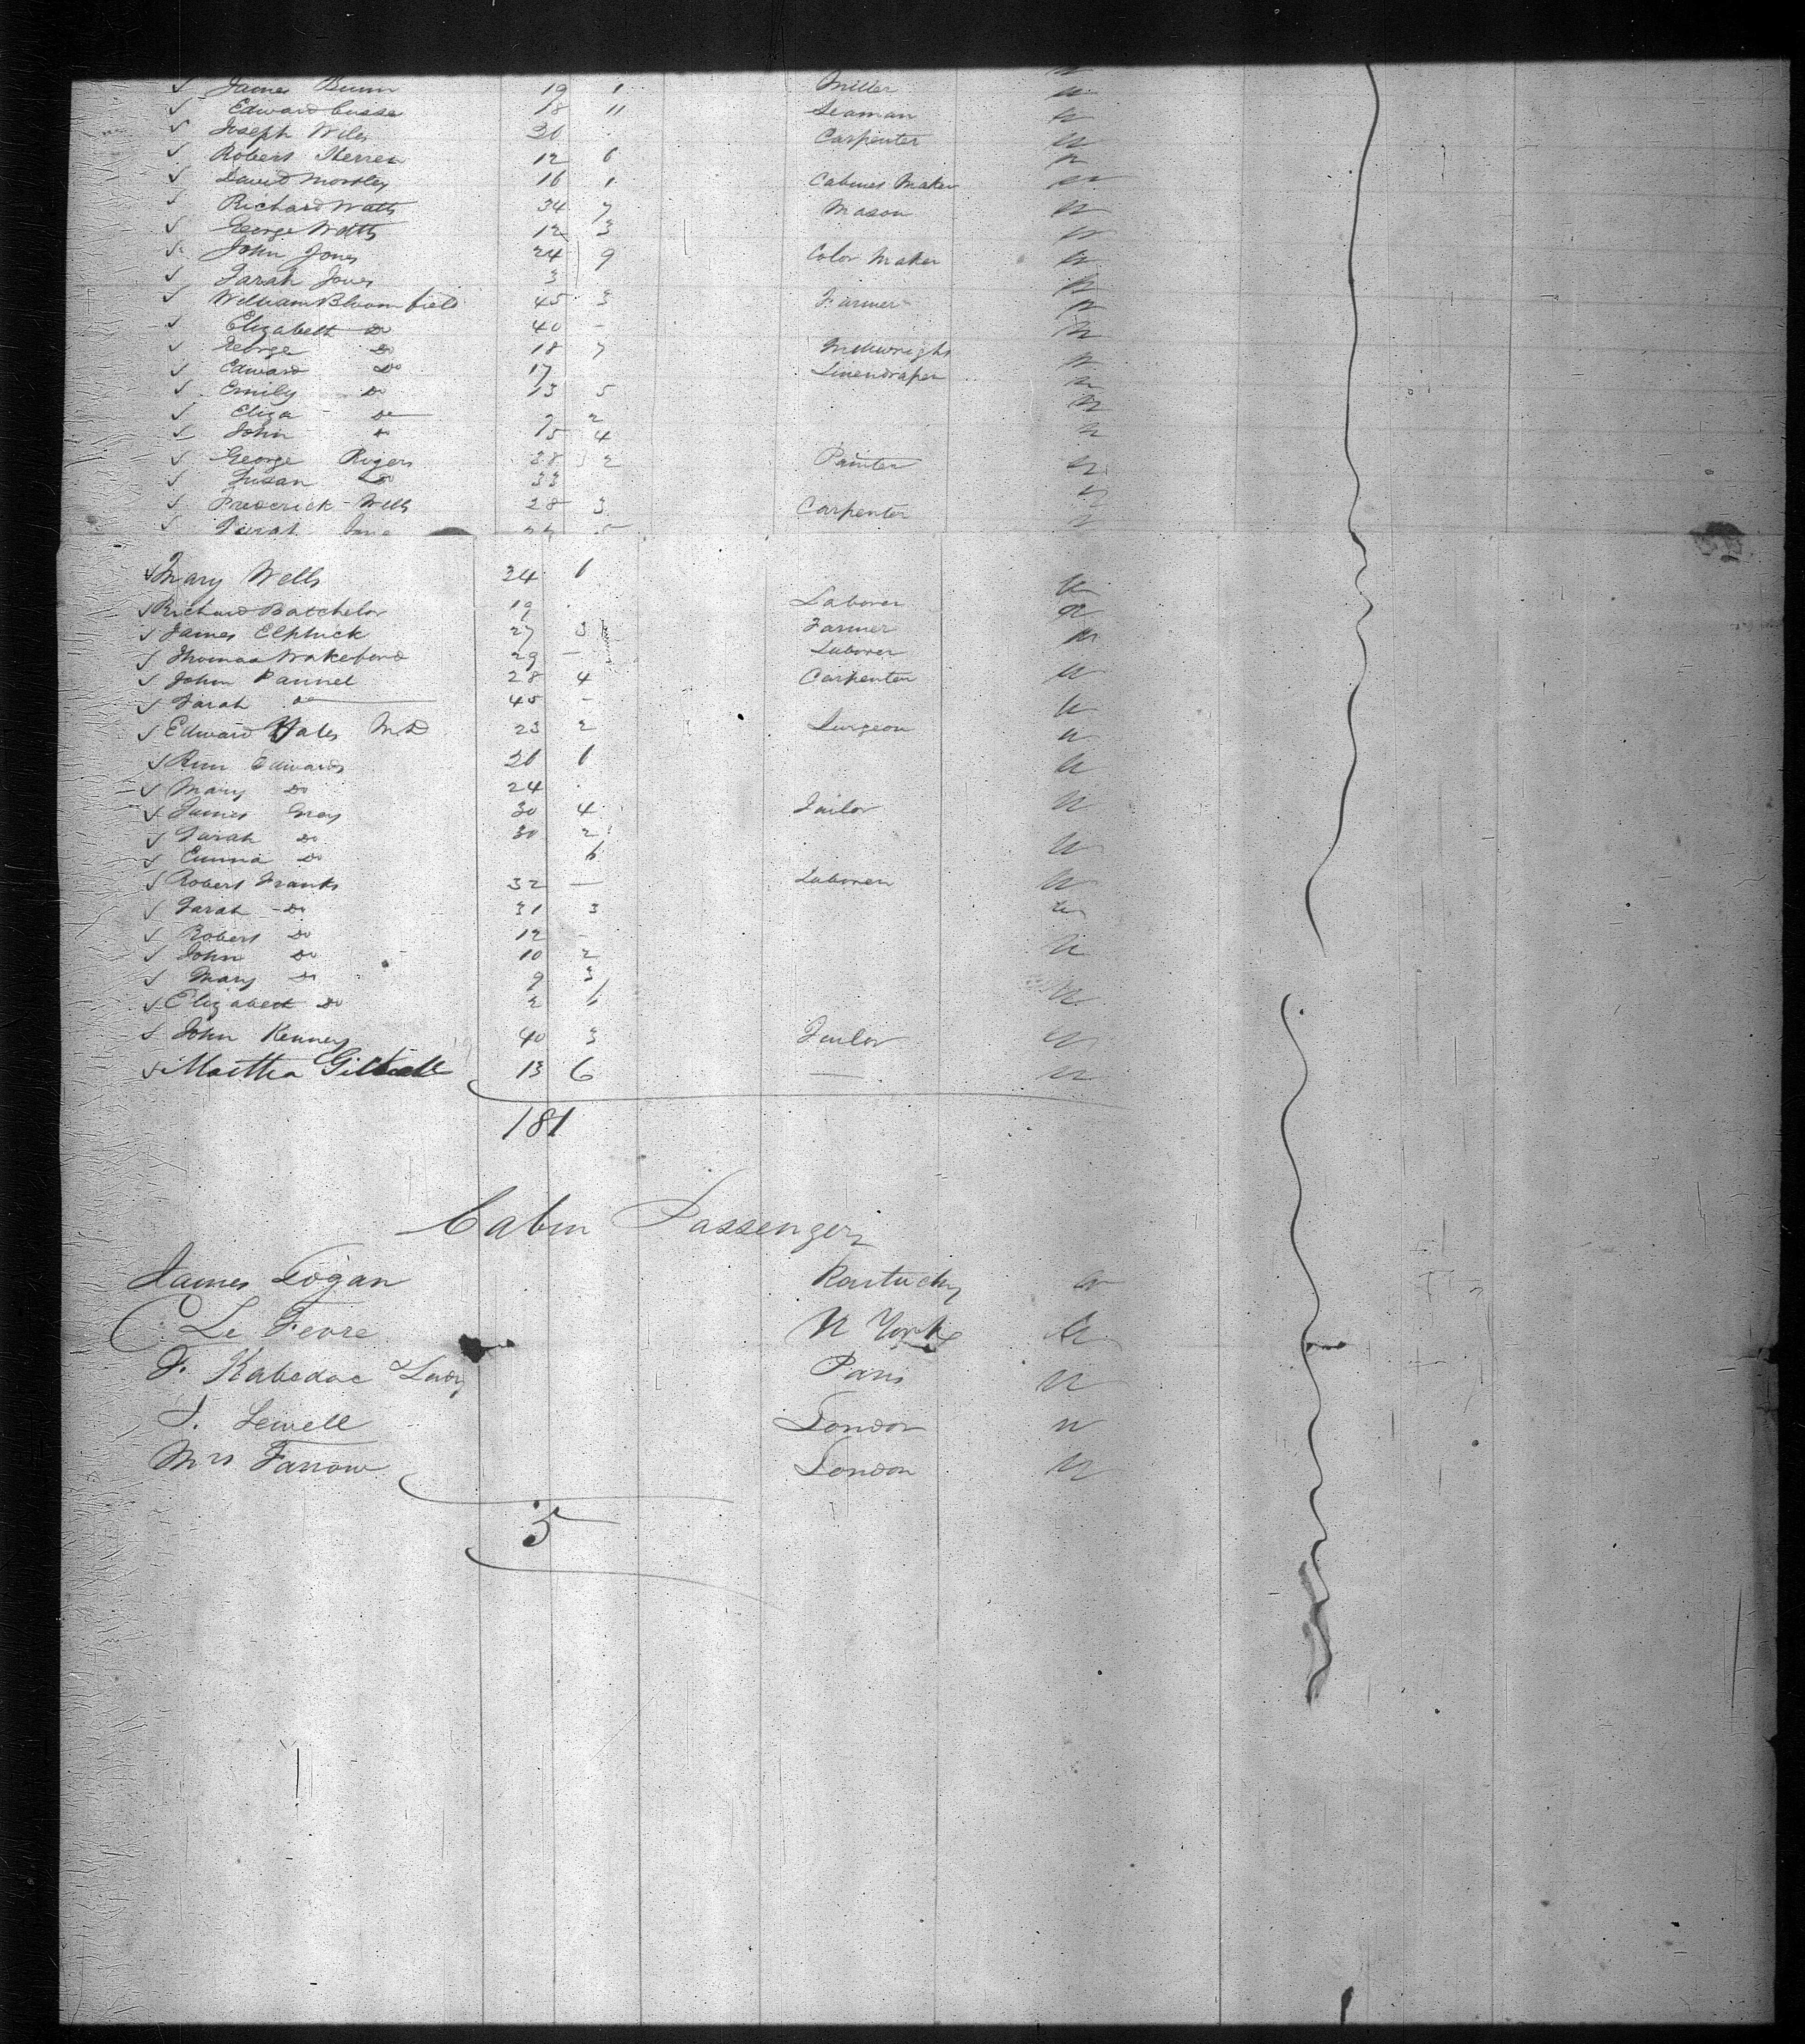 James Bunn 19 1 Miller
Edward 18 11 Seaman
Joseph Wiles 30 Carpenter
Robert Herren 12 6
David Mostley 16 1 Cabinet Maker
Richard Watts 34 7 Mason
George Watts 12 3
John Jones 24 9 Color Maker
Sarah Jones 3
William Bloomfield 45 3 Farmer
Elizabeth Do 40 -
George Do 18 7 Millwright
Edward Do 17 Linendraper
Emily Do 13 5
Eliza Do 7 2
John Do 5 4
George Rogers 28 2 Painter
Susan Do 33
Frederick Wells 28 3 Carpenter
Sarah
Mary Wells 24 6
Richard Batchelor 19 Laborer
James Elphick 27 3 Farmer
Thomas Wakeford 29 - Laborer
John Pannel 28 4 Carpenter
Sarah Do 45 -
Edward Yates MD 23 2 Surgeon
Edwards 26 6
Mary Do 24
James Gray 30 4 Tailor
Sarah Do 30 2
Emma Do 6
Robert Franks 32 - Laborer
Sarah Do 31 3
Robert Do 12 -
John Do 10 2
Mary Do 9 3
Elizabeth Do 2 6
John Kenney 40 3 Tailor
Martha 13 6 -
181
Cabin Passengers
James Logan Kentucky
C. Le Fevre N York
& Lady Paris
Sewell London
Mrs Farrow London
5